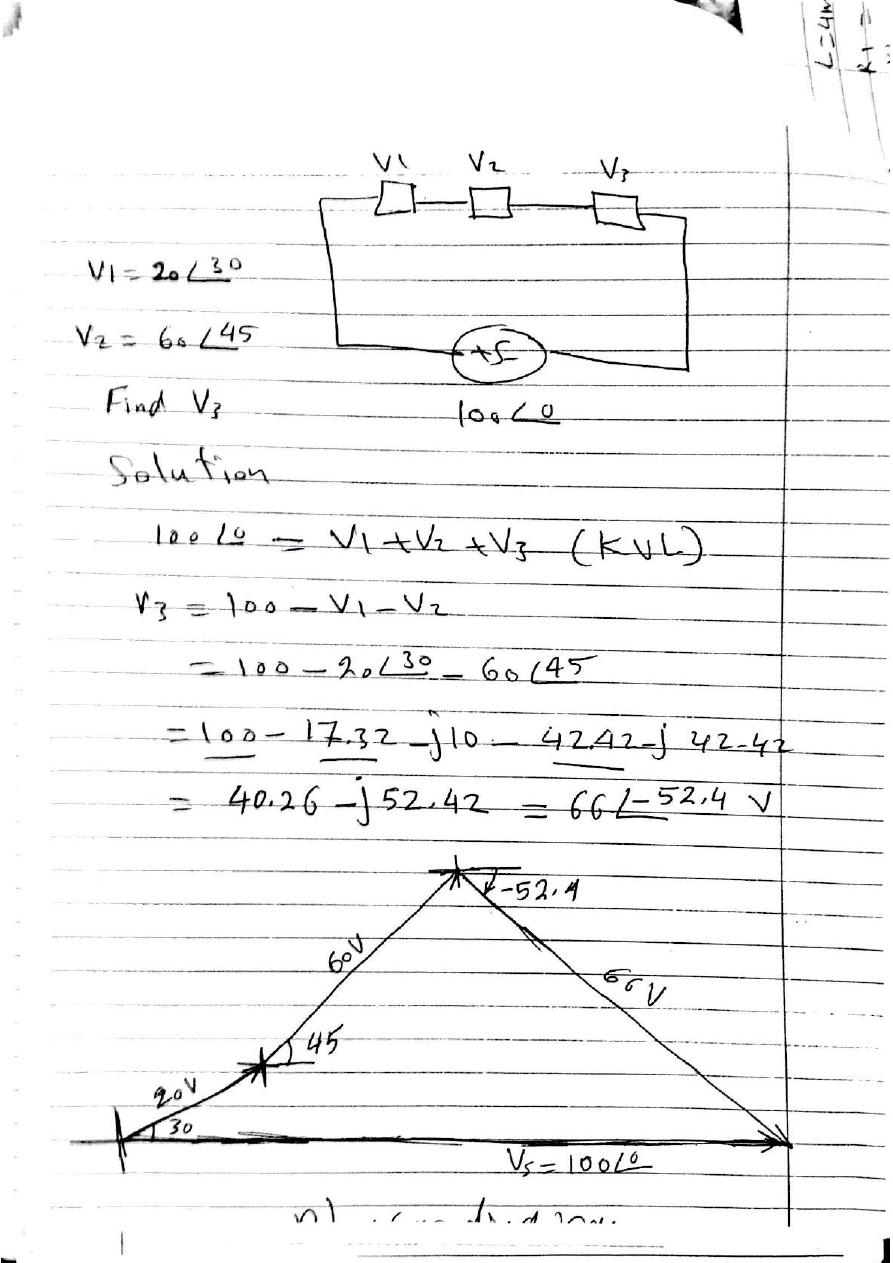 L=4m
R1=
V1 V2 V3
V1 = 20∠30
V2 = 60∠45
Find V3
100∠0
Solution
100∠0 = V1 + V2 + V3 (KVL)
V3 = 100 - V1 - V2
= 100 - 20∠30 - 60∠45
= 100 - 17.32 - j10 - 42.42 - j 42.42
= 40.26 - j52.42 = 66∠-52.4 V
-52.4
60V
66V
45
20V
30
Vs = 100∠0